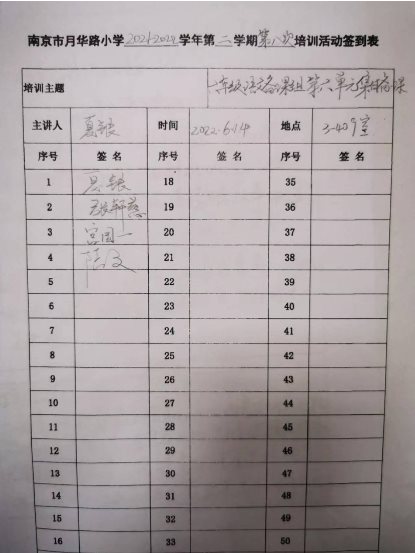 南京市月华路小学2021-2022学年第二学期第八次培训活动签到表
培训主题 一年级语文备课组第六单元集体备课
主讲人 夏银 时间 2022.6.14 地点 3-409室
序号 签名 序号 签名 序号 签名
1 夏银 18 35
2 19 36
3 宫国一 20 37
4 陆文 21 38
5 22 39
6 23 40
7 24 41
8 25 42
9 26 43
10 27 44
11 28 45
12 29 46
13 30 47
14 31 48
15 32 49
16 33 50